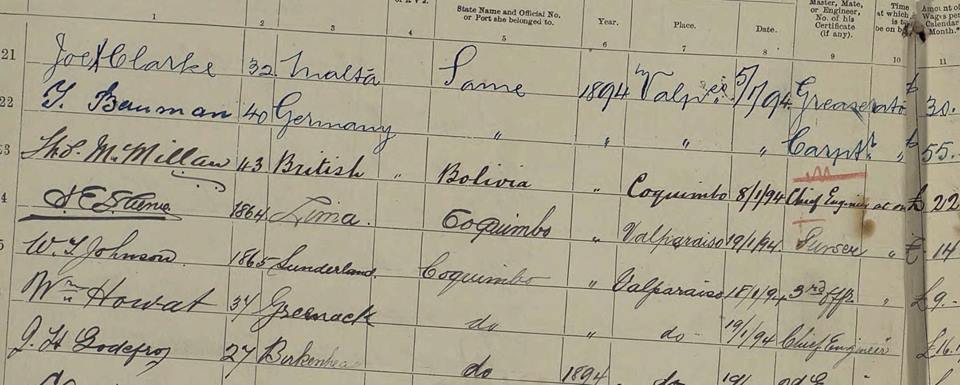 State Name and Official No. or Port she belonged to. Year. Place. Date. Master, Mate, or Engineer, No. of his Certificate (if any). Time at which Amount of Wages per Calendar Month.
1 2 3 4 5 6 7 8 9 10 11
21 Joe Clarke 32 Malta Same 1894 Valp 5/1/94 Greaser £ 30.
22 Bauman 40 Germany " " " " Carptr " £ 55.
23 McMillan 43 British " Bolivia " Coquimbo 8/1/94 Chief Engineer at £ 22
4 1864 Lima. Coquimbo " Valparaiso 19/1/94 Purser " £ 14
5 W. J. Johnson 1865 Sunderland. Coquimbo " Valparaiso 18/1/94 3rd Offr. " £9-
Wm Howat 34 Greenock do " do 19/1/94 Chief Engineer " £16.
J. H. Godefroy 27 Birkenhead do 1894 do